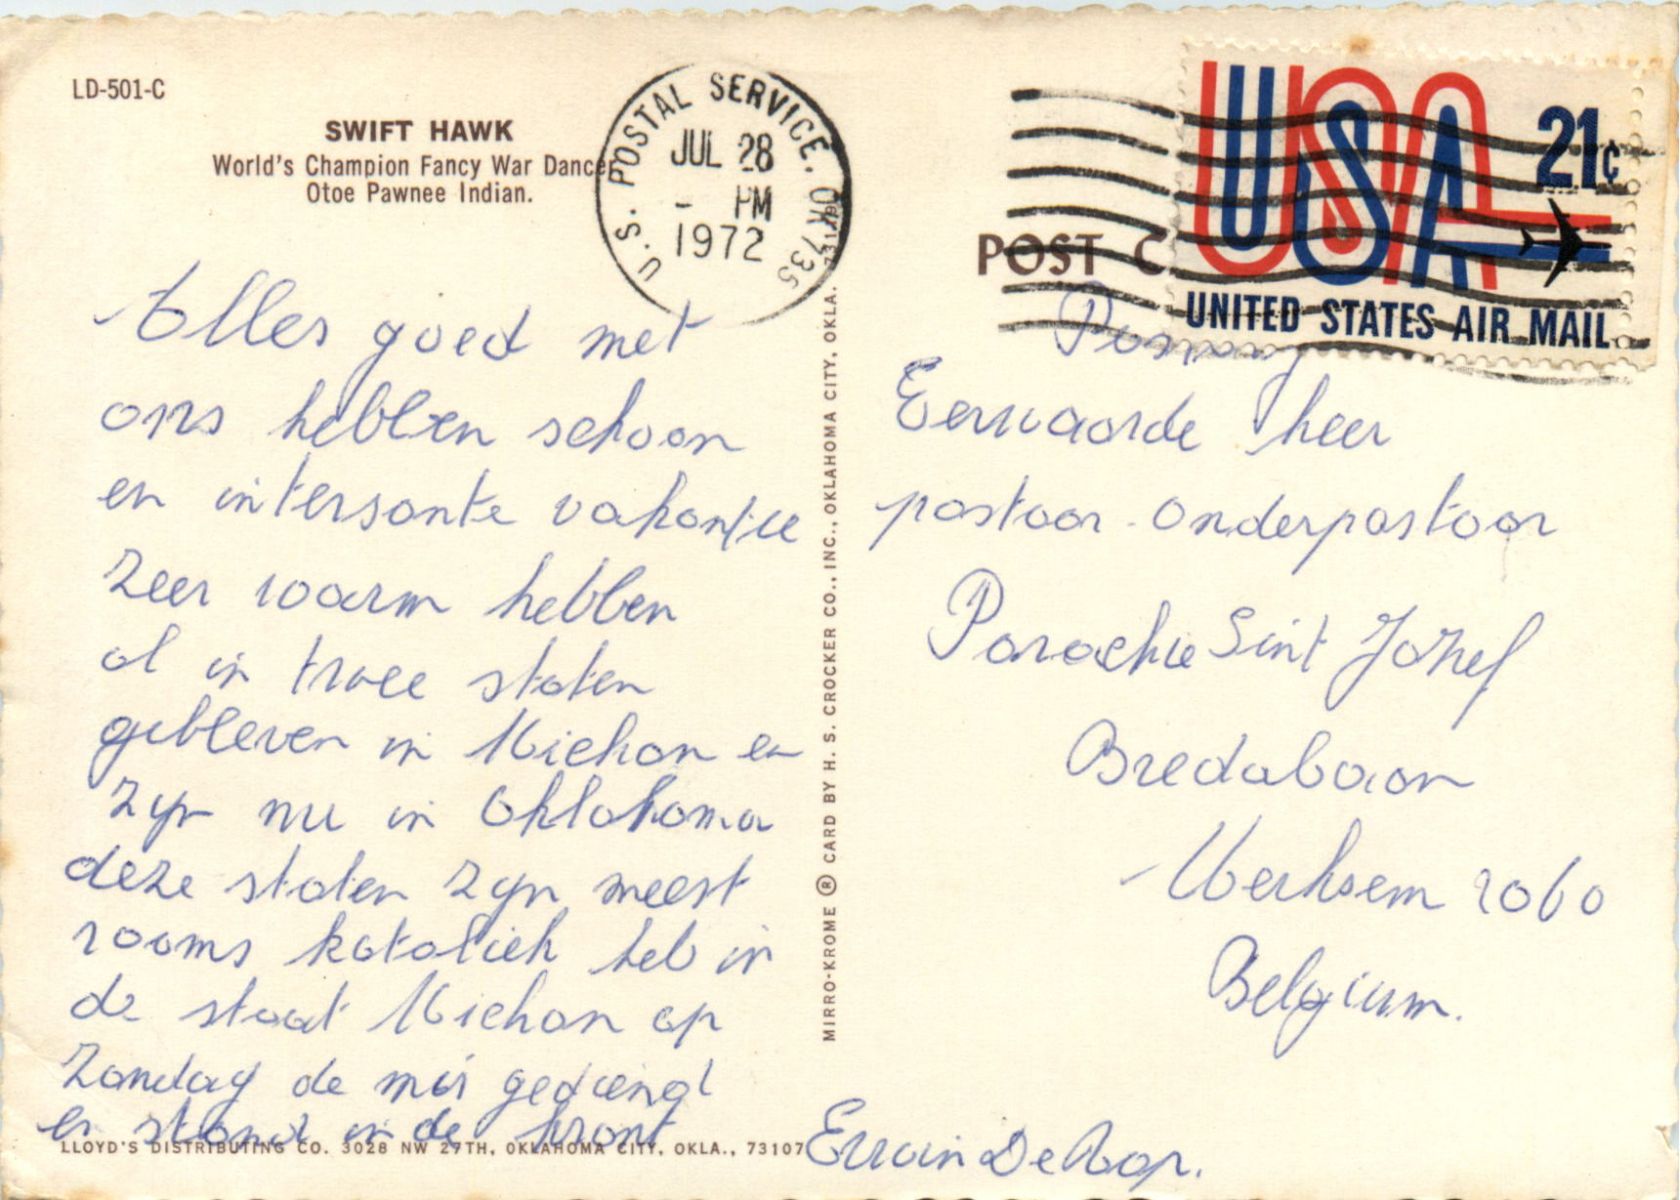 LD-501-C
SWIFT HAWK
World's Champion Fancy War Dancer
Otoe Pawnee Indian.
U.S. POSTAL SERVICE. OK 735
JUL 28
- PM
1972
POST C
USA 21¢
UNITED STATES AIR MAIL
Alles goed met
ons hebben schoon
en intersante vakantie
Zeer warm hebben
al in twee staten
gebleven in Michan en
Zyn nu in Oklahoma
deze staten zyn meest
rooms katoliek heb in
de staat Michan op
Zondag de mis gediend
en stond in de kront
Eerwaarde heer
pastoor - onderpastoor
Parochie Sint Jozef
Bredabaan
Merksem 2060
Belgium.
Erwin De
MIRRO-KROME ® CARD BY H. S. CROCKER CO., INC., OKLAHOMA CITY, OKLA.
LLOYD'S DISTRIBUTING CO. 3028 NW 27TH, OKLAHOMA CITY, OKLA., 73107